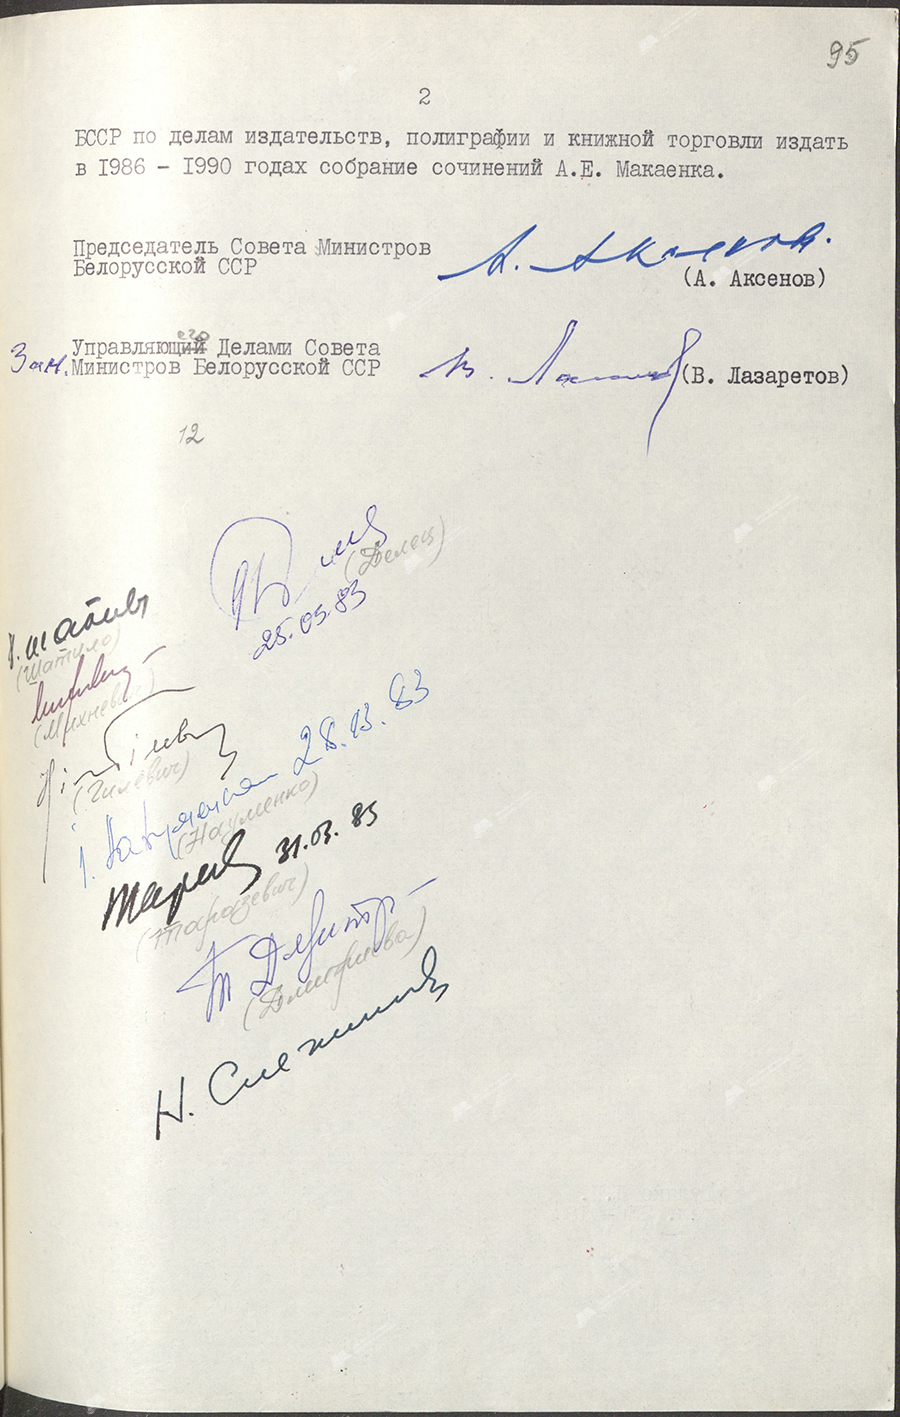 95
2
БССР по делам издательств, полиграфии и книжной торговли издать
в 1986 - 1990 годах собрание сочинений А.Е. Макаенка.
Председатель Совета Министров
Белорусской ССР
А. Аксенов.
(А. Аксенов)
его
Управляющий Делами Совета
Зам. Министров Белорусской ССР
В. Лазаретов
(В. Лазаретов)
12
(Делец)
25.03.83
(Шатило)
(Гилевич)
28.03.83
(Науменко)
31.03.83
(Таразевич)
Т Дмитр
(Дмитриева)
Н. Снежкова